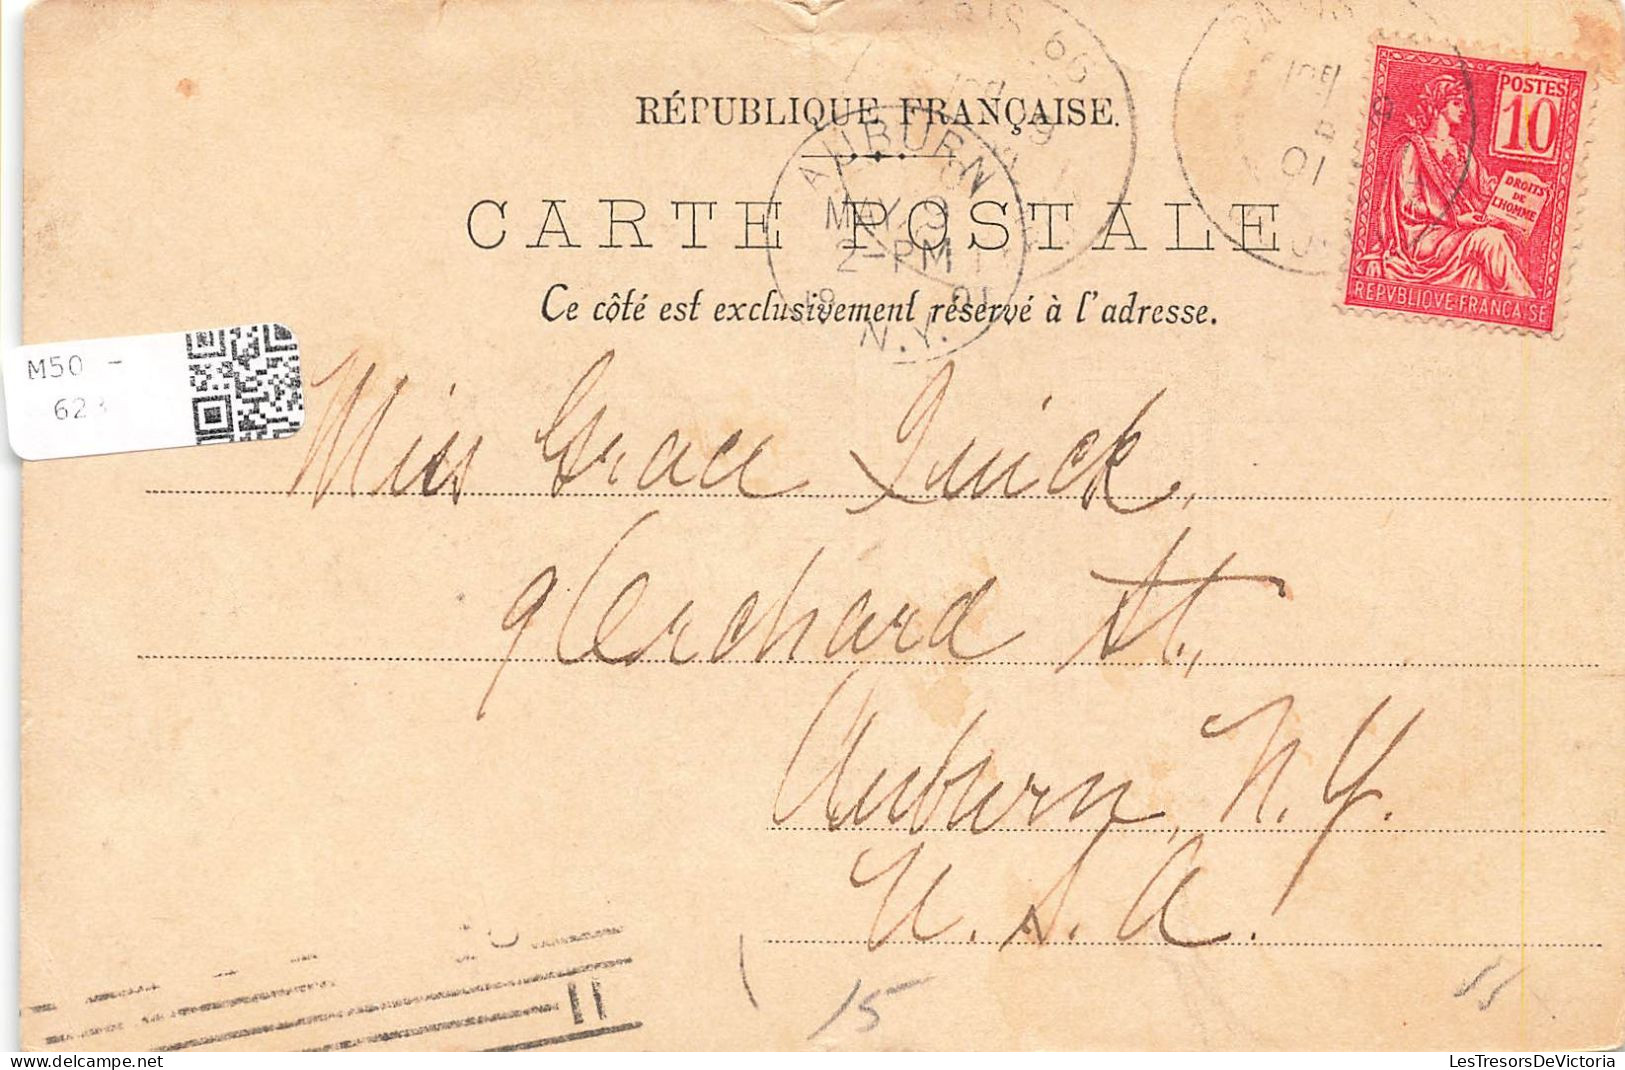 RÉPUBLIQUE FRANÇAISE.
CARTE POSTALE
Ce côté est exclusivement réservé à l'adresse.
POSTES
10
DROITS
DE
L'HOMME
REPVBLIQVE FRANÇAISE
AUBURN
MAY 9
2-PM
1901
N.Y.
M50 -
Miss Grace Quick,
9 Orchard St.,
Auburn, N.Y.
U.S.A.
15
LesTresorsDeVictoria